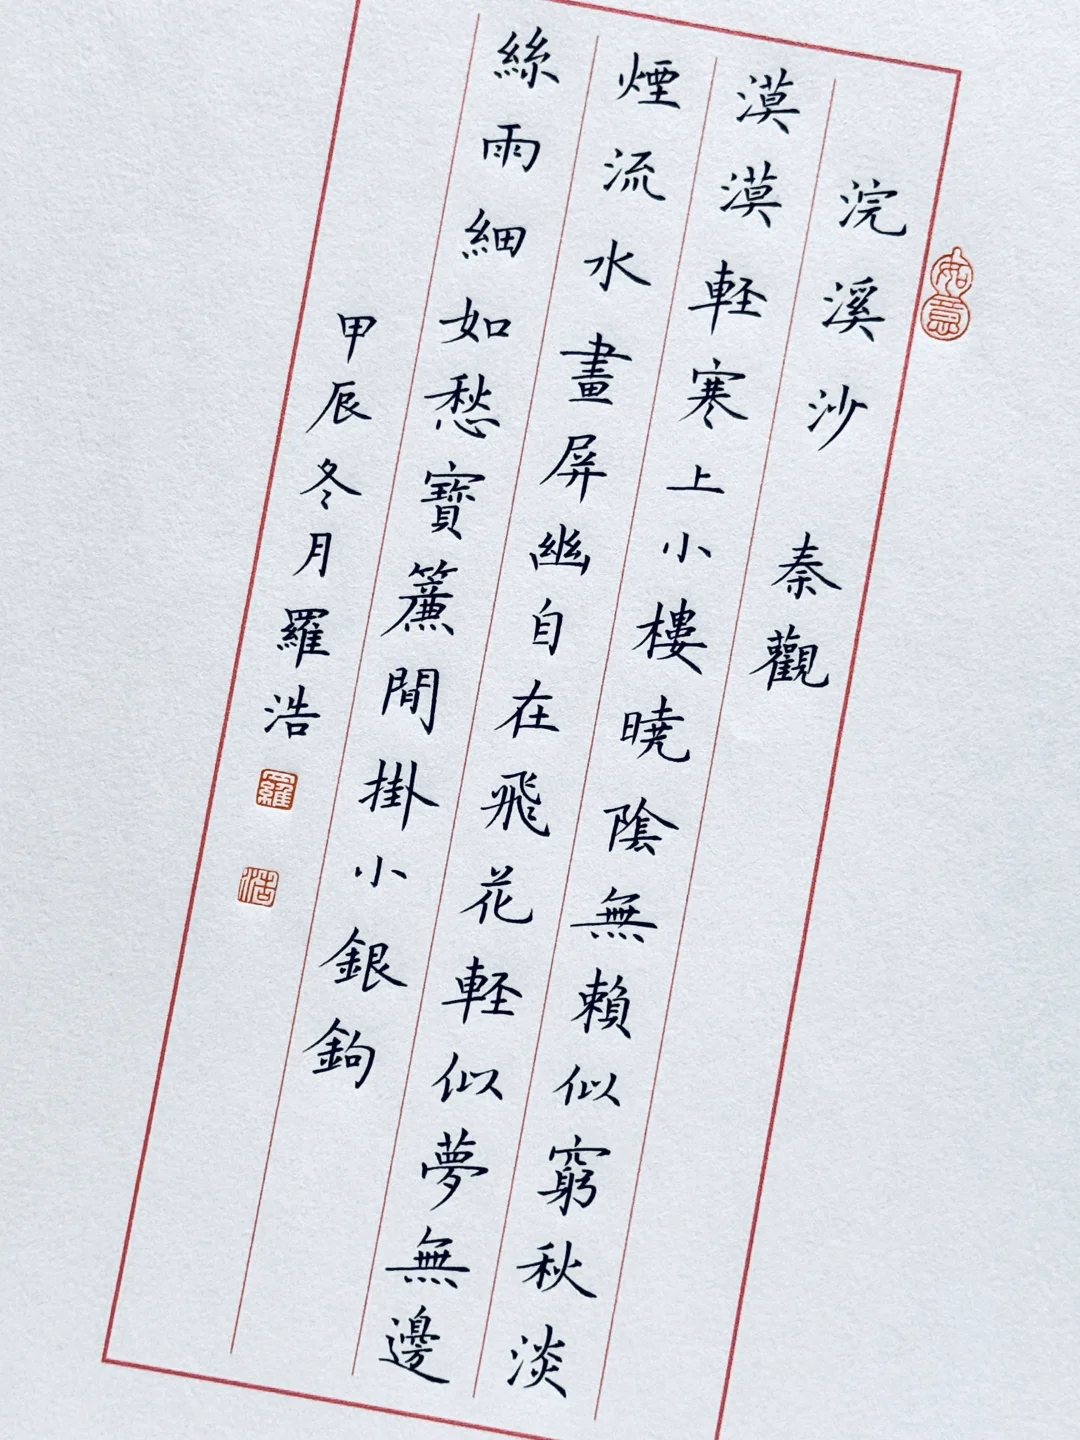 浣溪沙 秦觀
漠漠軽寒上小樓曉陰無賴似窮秋淡
煙流水畫屏幽自在飛花軽似夢無邊
絲雨細如愁寶簾閒掛小銀鉤
甲辰冬月羅浩
如意
羅
浩